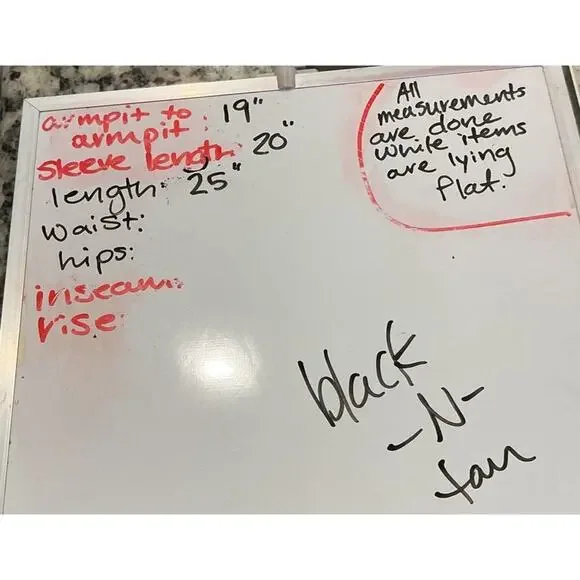 armpit to
armpit: 19"
sleeve length: 20"
length: 25"
waist:
hips:
inseam:
rise:
All
measurements
are done
while items
are lying
flat.
black
-N-
tan